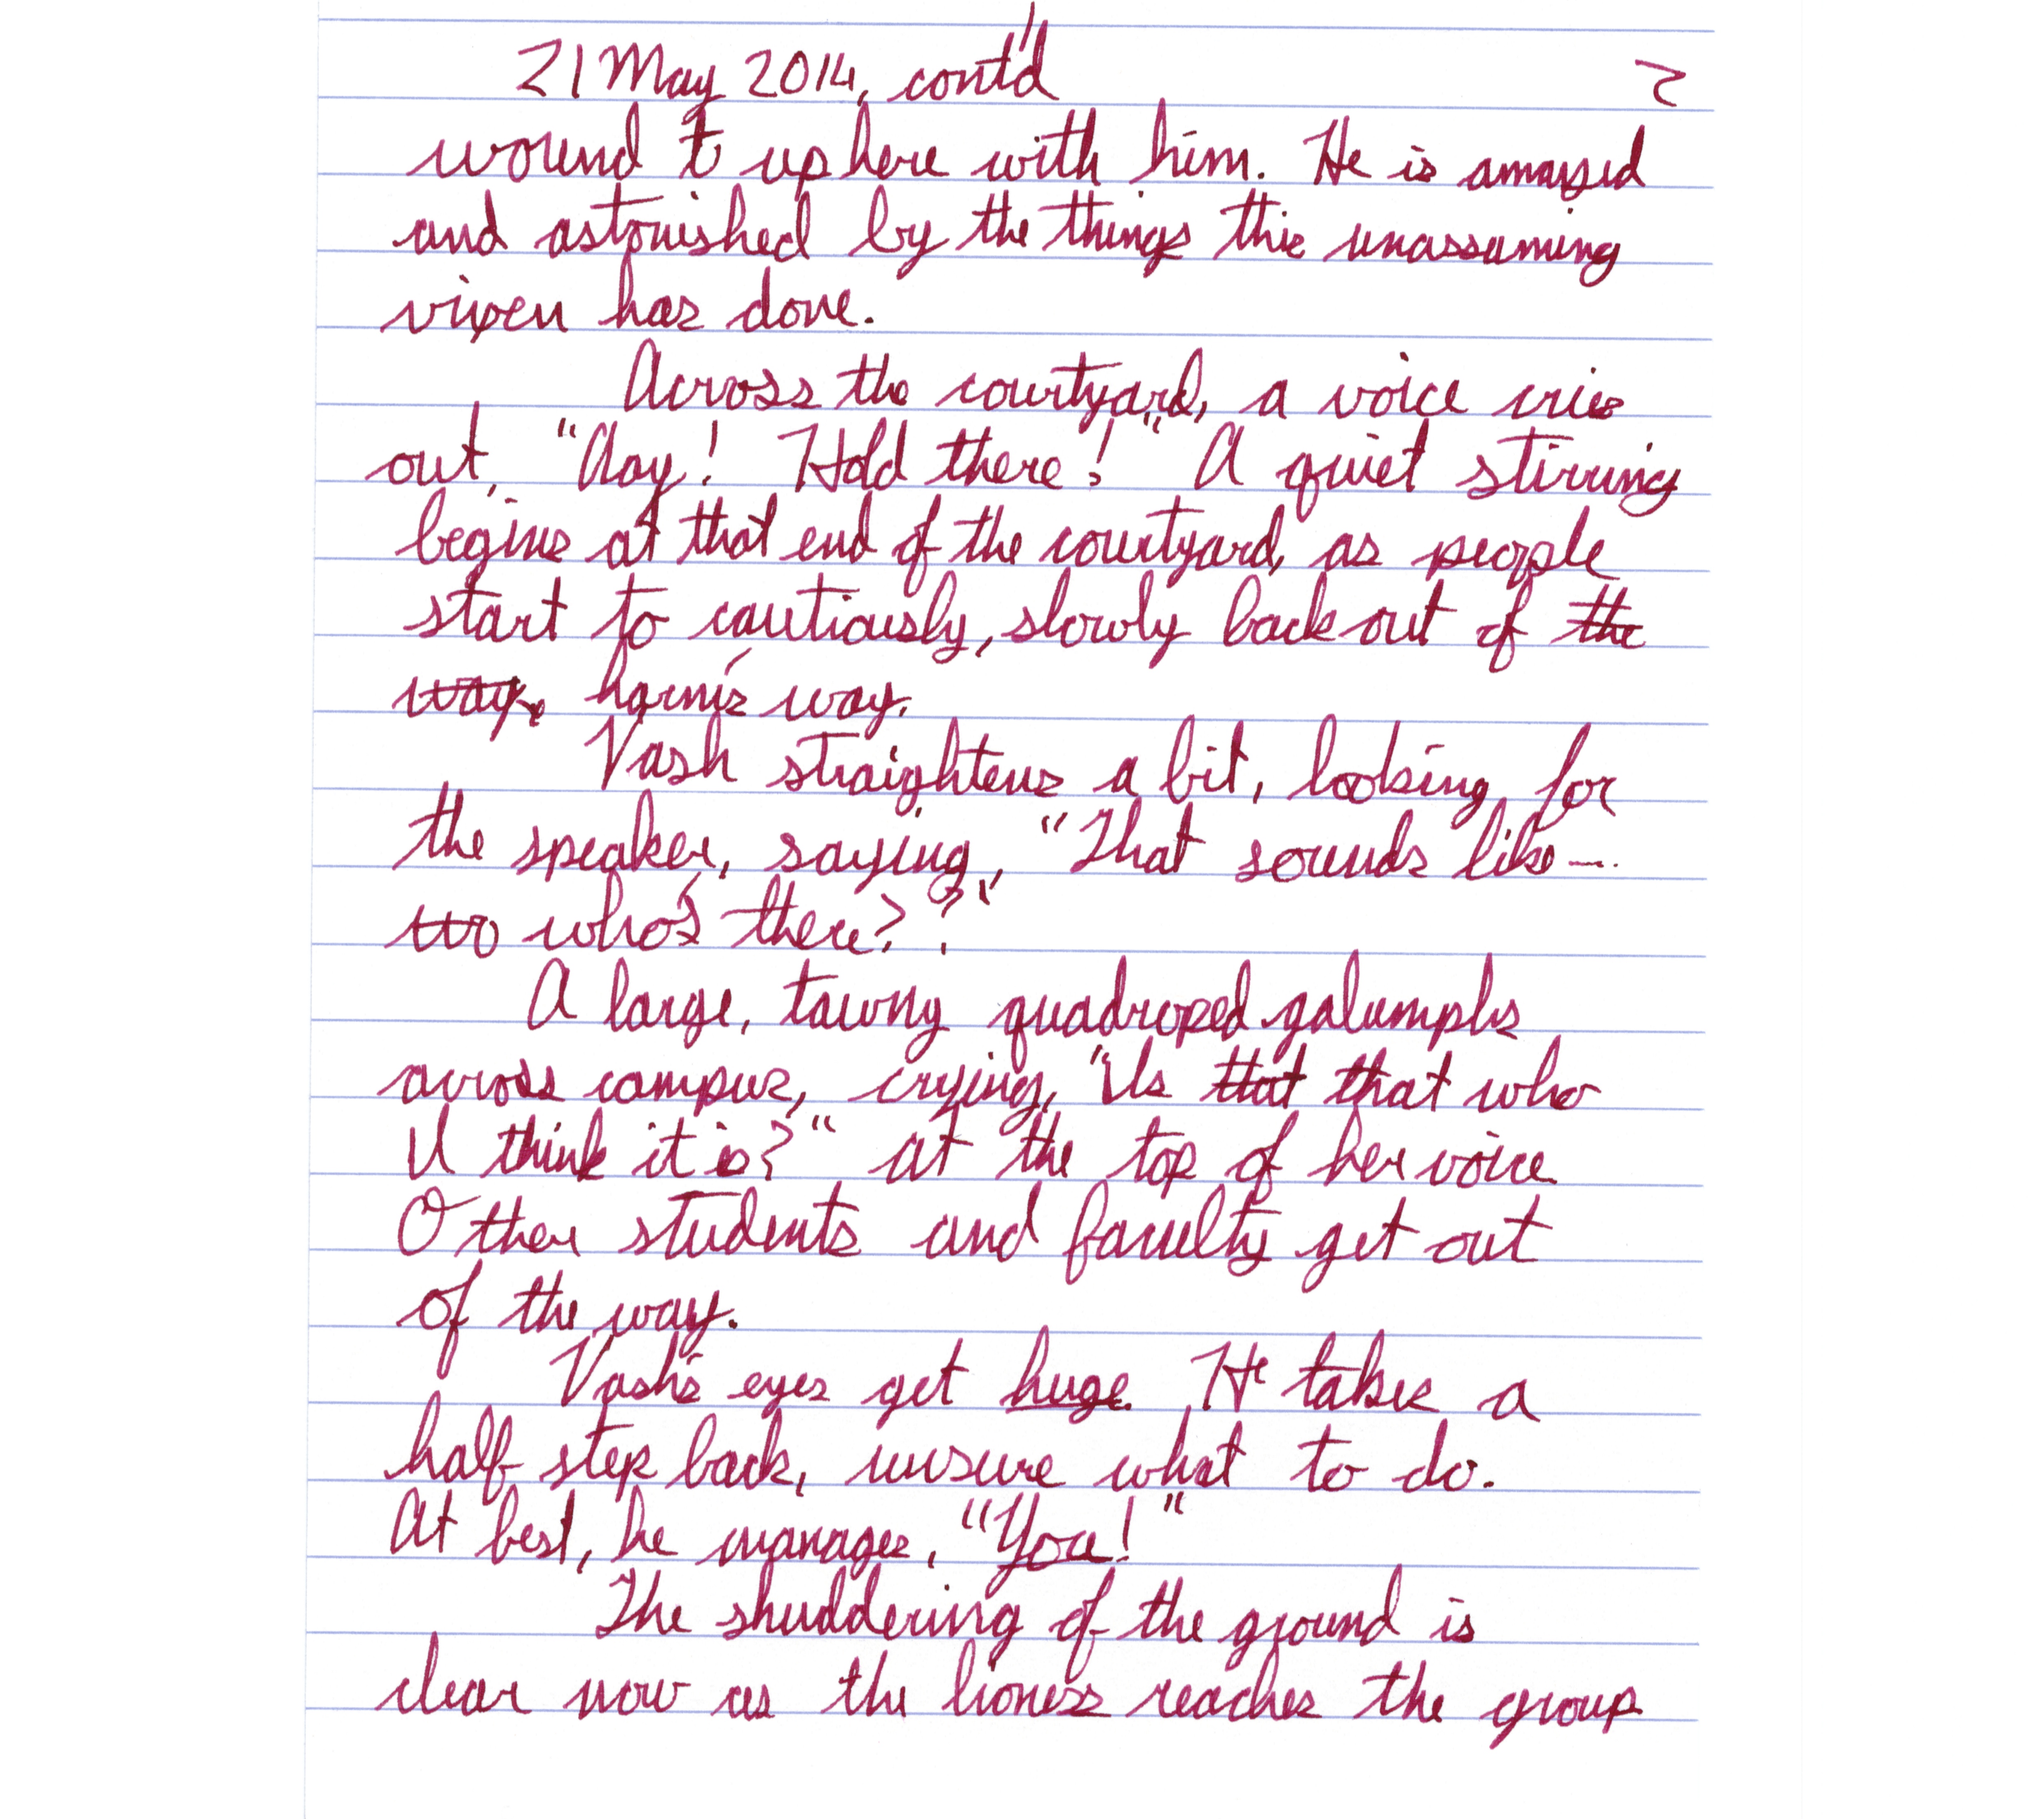 21 May 2014, cont'd 2
wound t up here with him. He is amazed
and astonished by the things this unassuming
vixen has done.
Across the courtyard, a voice cries
out, "Aay! Hold there!" A quiet stirring
begins at that end of the courtyard, as people
start to cautiously, slowly back out of ~~the~~
~~way.~~ harm's way.
Vash straightens a bit, looking for
the speaker, saying, "That sounds like—
~~wo~~ who's there??"
A large, tawny quadroped galumphs
across campus, crying, "Is ~~that~~ that who
I think it is?" at the top of her voice
Other students and faculty get out
of the way.
Vash's eyes get huge. He takes a
half-step back, unsure what to do.
At best, he manages, "You!"
The shuddering of the ground is
clear now as the lioness reaches the group